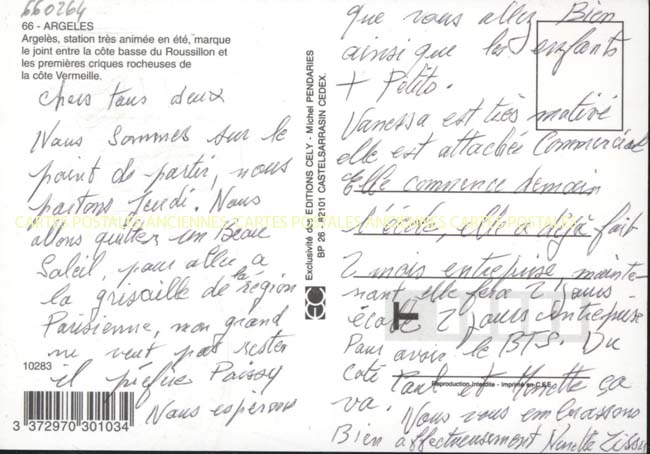 660264
66 - ARGELES
Argelès, station très animée en été, marque
le joint entre la côte basse du Roussillon et
les premières criques rocheuses de
la côte Vermeille.
Chers tous deux
Nous sommes sur le
point de partir, nous
partons Jeudi. Nous
allons quitter un Beau
Soleil, pour aller a
la grisaille de la région
Parisienne, mon grand
ne veut pas rester
il préfère Poissy
Nous espérons
10283
3 372970 301034
CARTES POSTALES ANCIENNES CARTES POSTALES ANCIENNES CARTES POSTALES ANCIENNES
Exclusivité de EDITIONS CELY - Michel PENDARIES
BP 26 - 82101 CASTELSARRASIN CEDEX
que vous allez Bien
ainsi que les enfants
+ Petits.
Vanessa est très motivé
elle est attachée Commercial
Elle commence demain
l'école, elle a déjà fait
2 mois entreprise mainte-
nant elle fera 2 jours
école 2 jours entreprise
Pour avoir le BTS. Du
coté Paul et Ginette ça
va. Nous vous embrassons
Bien affectueusement Nanette
Reproduction Interdite - Imprimé en C.E.E.